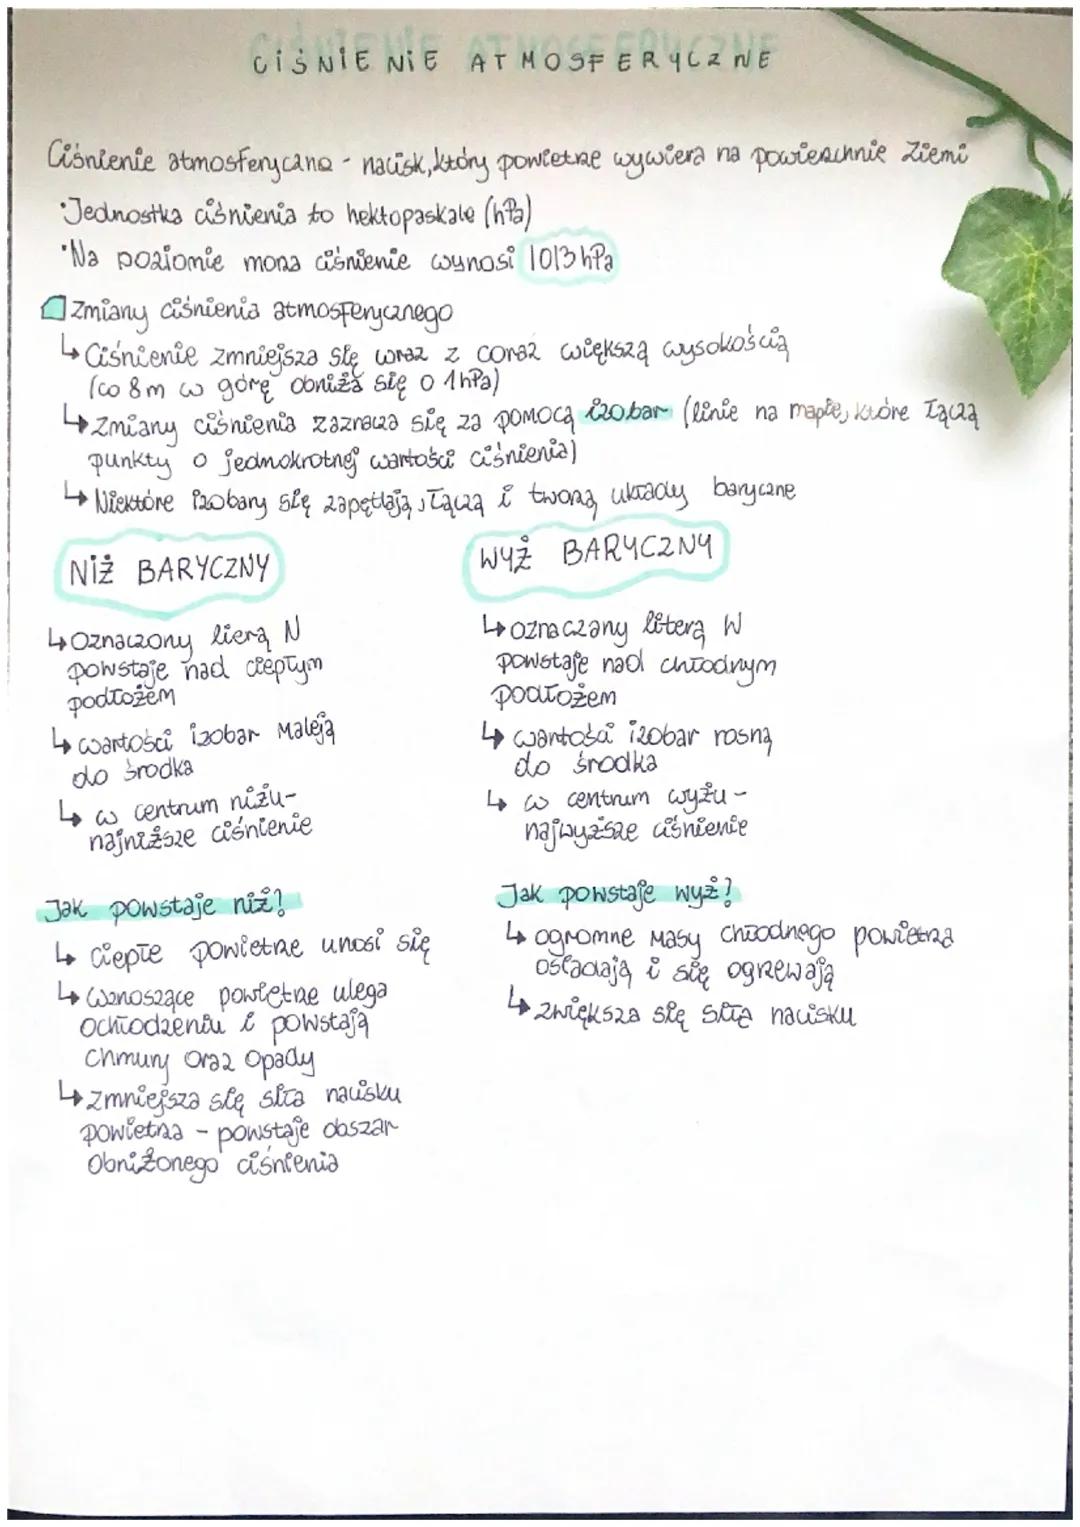 CIŚNIENIE ATMOSFERYCZNE
Ciśnienie atmosferyczne - nacisk, który powietrze wywiera na powierzchnie Ziemi
·Jednostka ciśnienia to hektopaskale (hPa)
·Na poziomie morza ciśnienie wynosi 1013 hPa
Zmiany ciśnienia atmosferycznego
↳ Ciśnienie zmniejsza się wraz z coraz większą wysokością
(co 8m w górę obniża się o 1hPa)
↳ Zmiany ciśnienia zaznacza się za pomocą izobar (linie na mapie, które łączą
punkty o jednokrotnej wartości ciśnienia)
↳ Niektóre izobary się zapętlają, łączą i tworzą układy baryczne
NIŻ BARYCZNY
↳ Oznaczony lierą N
powstaje nad ciepłym
podłożem
↳ wartości izobar maleją
do środka
↳ w centrum niżu-
najniższe ciśnienie
Jak powstaje niż?
↳ Ciepłe powietrze unosi się
↳ Wznoszące powietrze ulega
ochłodzeniu i powstają
chmury oraz opady
↳ zmniejsza się siła nacisku
powietrza - powstaje obszar
obniżonego ciśnienia
WYŻ BARYCZNY
↳ oznaczany literą W
powstaje nad chłodnym
podłożem
↳ wartości izobar rosną
do środka
↳ w centrum wyżu -
najwyższe ciśnienie
Jak powstaje wyż?
↳ ogromne masy chłodnego powietrza
osiadają i się ogrzewają
↳ zwiększa się siła nacisku